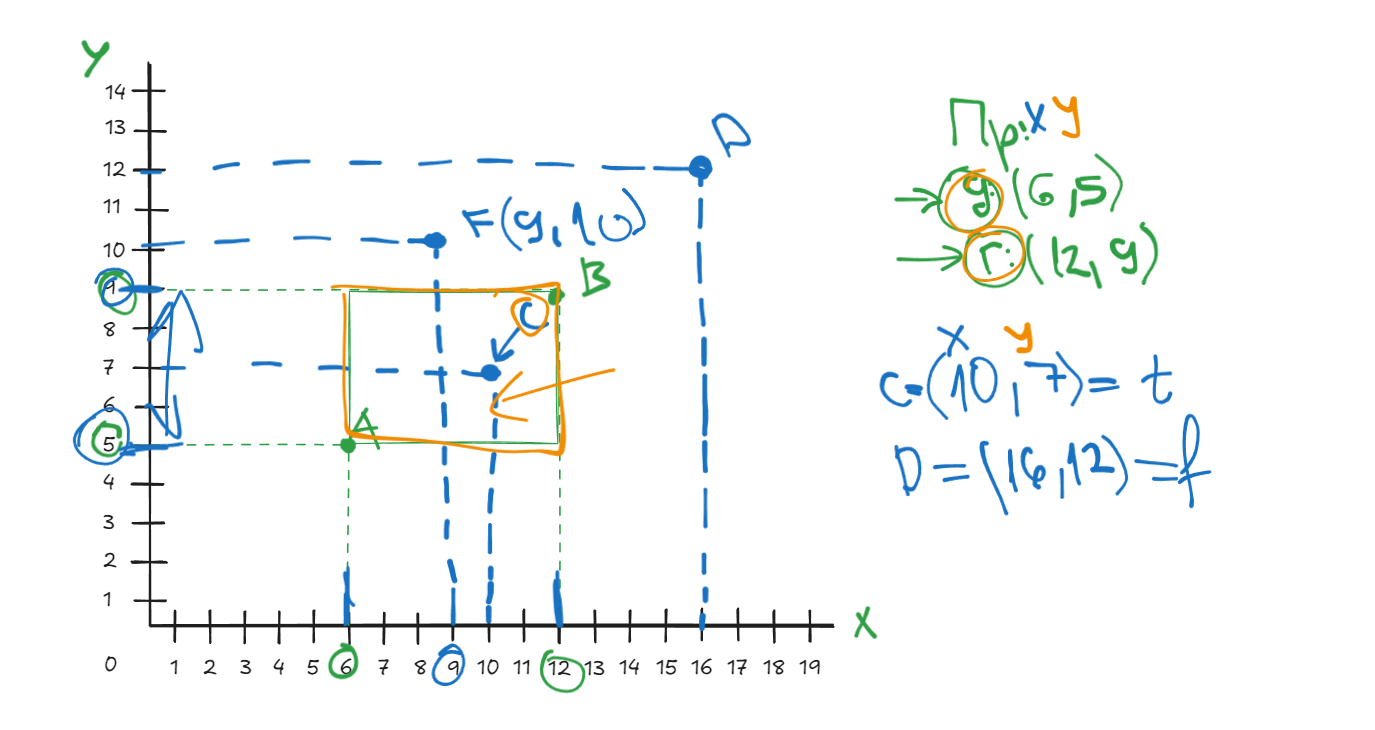 Y
14
13
12
11
10
9
8
7
6
5
4
3
2
1
0
1 2 3 4 5 6 7 8 9 10 11 12 13 14 15 16 17 18 19
X
D
F(9,10)
B
C
A
Пр: x y
g: (6,5)
r: (12,9)
x y
C=(10,7)= t
D=(16,12)=f